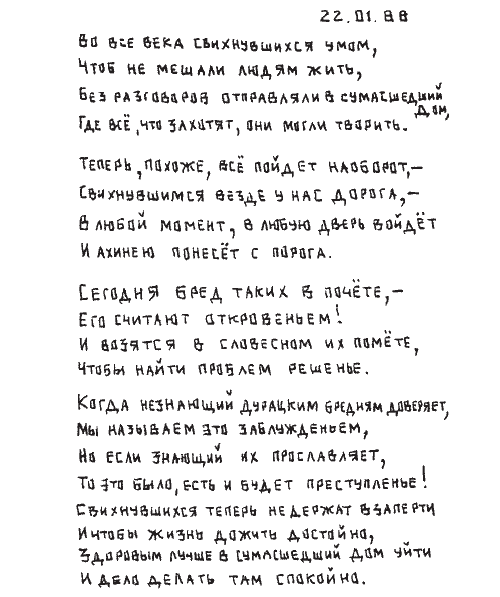 22.01.88
Во все века свихнувшихся умом,
Чтоб не мешали людям жить,
Без разговоров отправляли в сумасшедший дом,
Где всё, что захотят, они могли творить.
Теперь, похоже, всё пойдет наоборот,—
Свихнувшимся везде у нас дорога,—
В любой момент, в любую дверь войдёт
И ахинею понесёт с порога.
Сегодня бред таких в почёте,—
Его считают откровеньем!
И возятся в словесном их помёте,
Чтобы найти проблем решенье.
Когда незнающий дурацким бредням доверяет,
Мы называем это заблужденьем,
Но если знающий их прославляет,
То это было, есть и будет преступленье!
Свихнувшихся теперь не держат взаперти
И чтобы жизнь дожить достойно,
Здоровым лучше в сумасшедший дом уйти
И дело делать там спокойно.